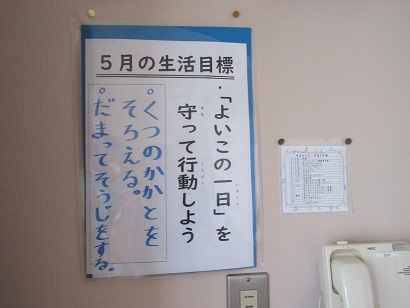 5月の生活目標
・「よいこの一日」を
守って行動しよう
まも
こうどう
いちにち
。くつのかかとを
そろえる。
。だまってそうじをする。
NEC